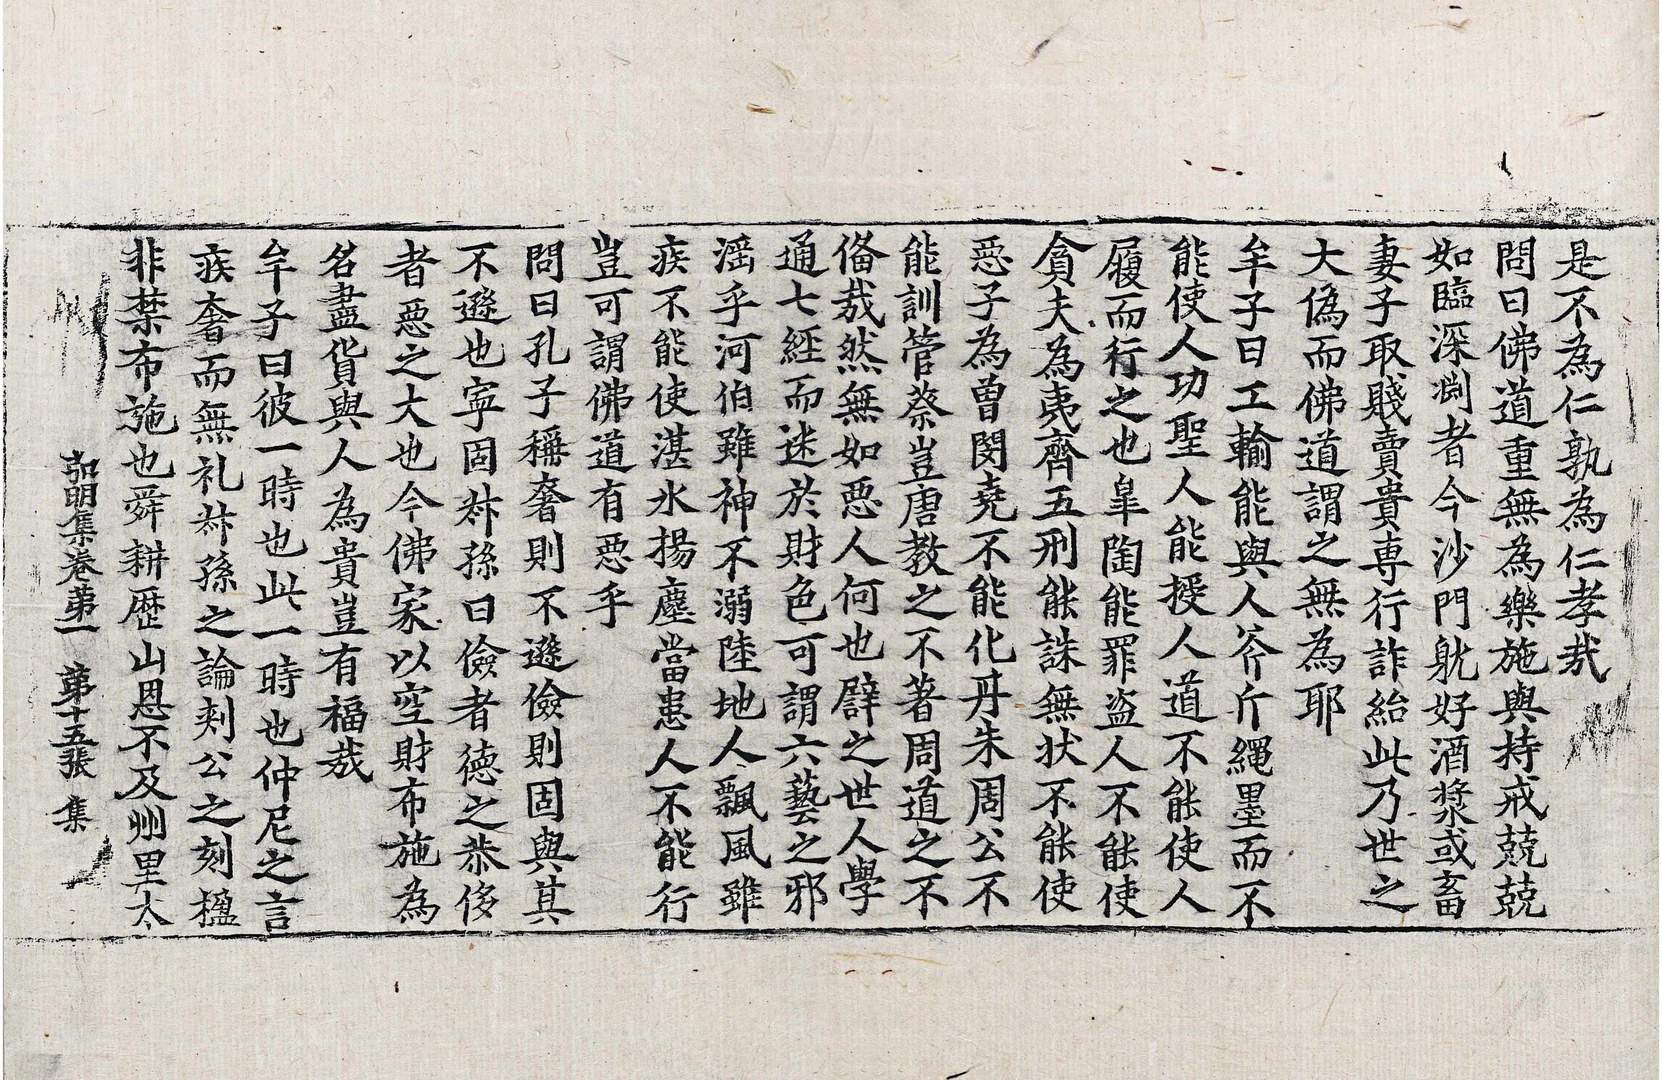 是不為仁孰為仁孝哉
問曰佛道重無為樂施與持戒兢兢
如臨深渊者今沙門躭好酒漿或畜
妻子取賤賣貴専行詐紿此乃世之
大偽而佛道謂之無為耶
牟子曰工輸能與人斧斤繩墨而不
能使人功聖人能授人道不能使人
履而行之也皐陶能罪盗人不能使
貪夫為夷齊五刑能誅無状不能使
惡子為曽閔堯不能化丹朱周公不
能訓管蔡豈唐教之不著周道之不
俻哉然無如惡人何也譬之世人學
通七經而迷於財色可謂六藝之邪
滛乎河伯雖神不溺陸地人飄風雖
疾不能使湛水揚塵當患人不能行
豈可謂佛道有惡乎
問曰孔子稱奢則不遜儉則固與其
不遜也寜固叔孫曰儉者德之恭侈
者惡之大也今佛家以空財布施為
名盡貨與人為貴豈有福哉
牟子曰彼一時也此一時也仲尼之言
疾奢而無礼叔孫之論刺公之刻楹
非禁布施也舜耕歴山恩不及州里太
弘明集卷第一 第十五張 集